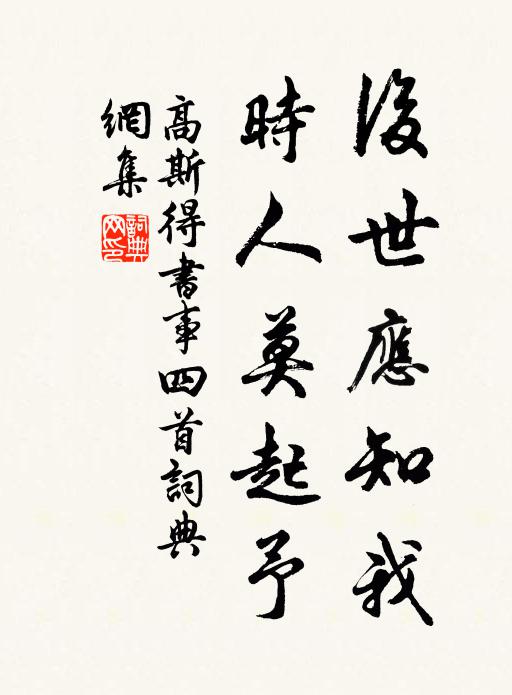 後世應知我
時人莫起予
高斯得書事四首詞典
網集
詞典
网印